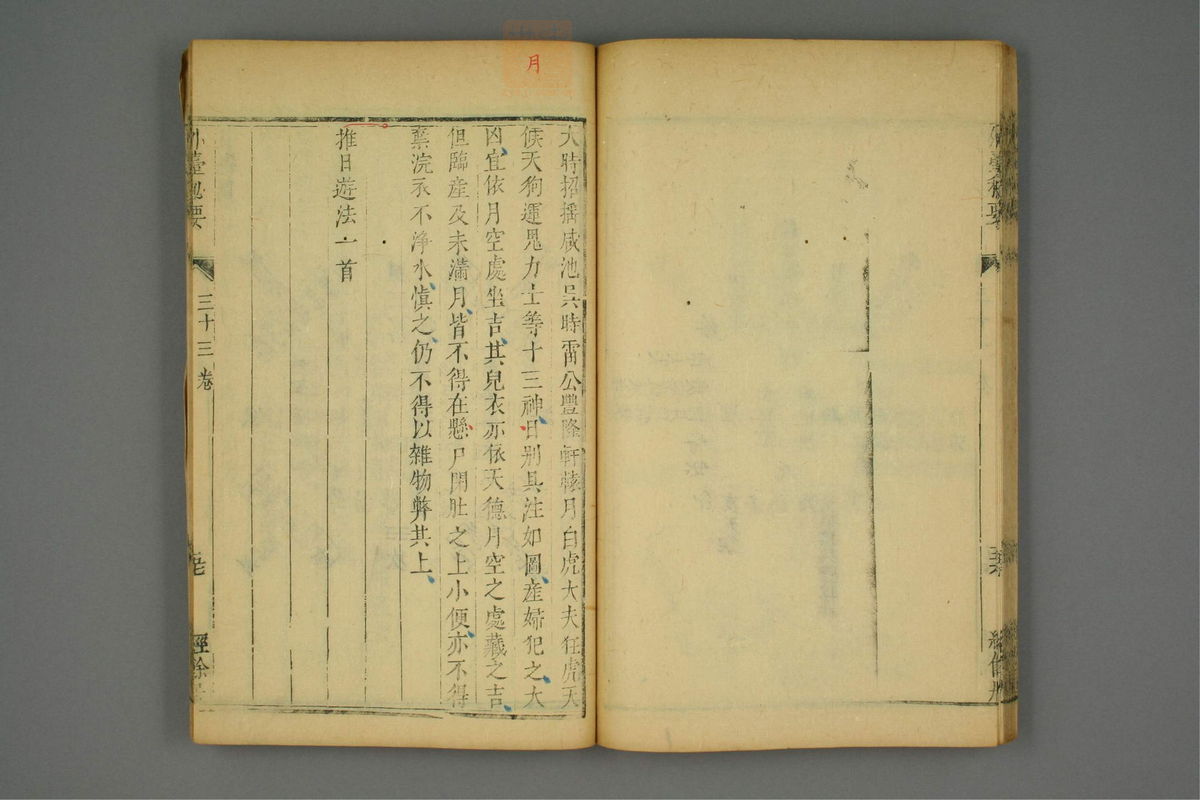 大時招搖咸池吳時雷公豐隆軒轅月白虎大夫狂虎天
候天狗運鬼力士等十三神日別具注如圖產婦犯之大
凶宜依月空處坐吉其兒衣亦依天德月空之處藏之吉
但臨產及未滿月皆不得在懸尸閉肚之上小便亦不得
棄浣衣不淨水慎之仍不得以雜物弊其上
推日遊法一首
外臺秘要
三十三卷
經餘居
月